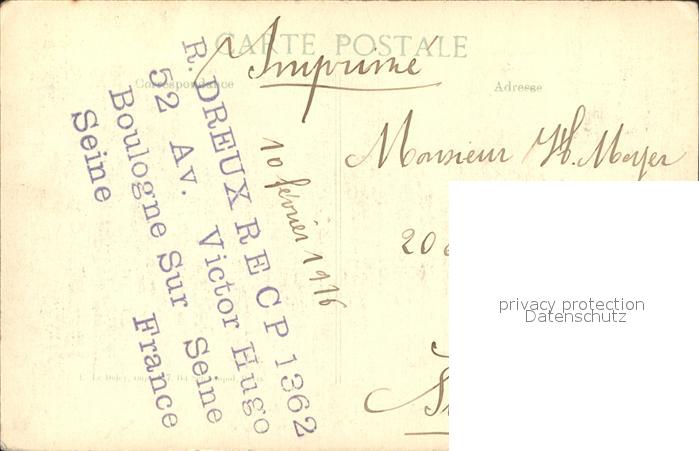 CARTE POSTALE
Imprimé
Correspondance
Adresse
R. DREUX RECP 1362
52 Av. Victor Hugo
Boulogne Sur Seine
Seine France
10 février 1916
Monsieur H. Meyer
20
privacy protection
Datenschutz